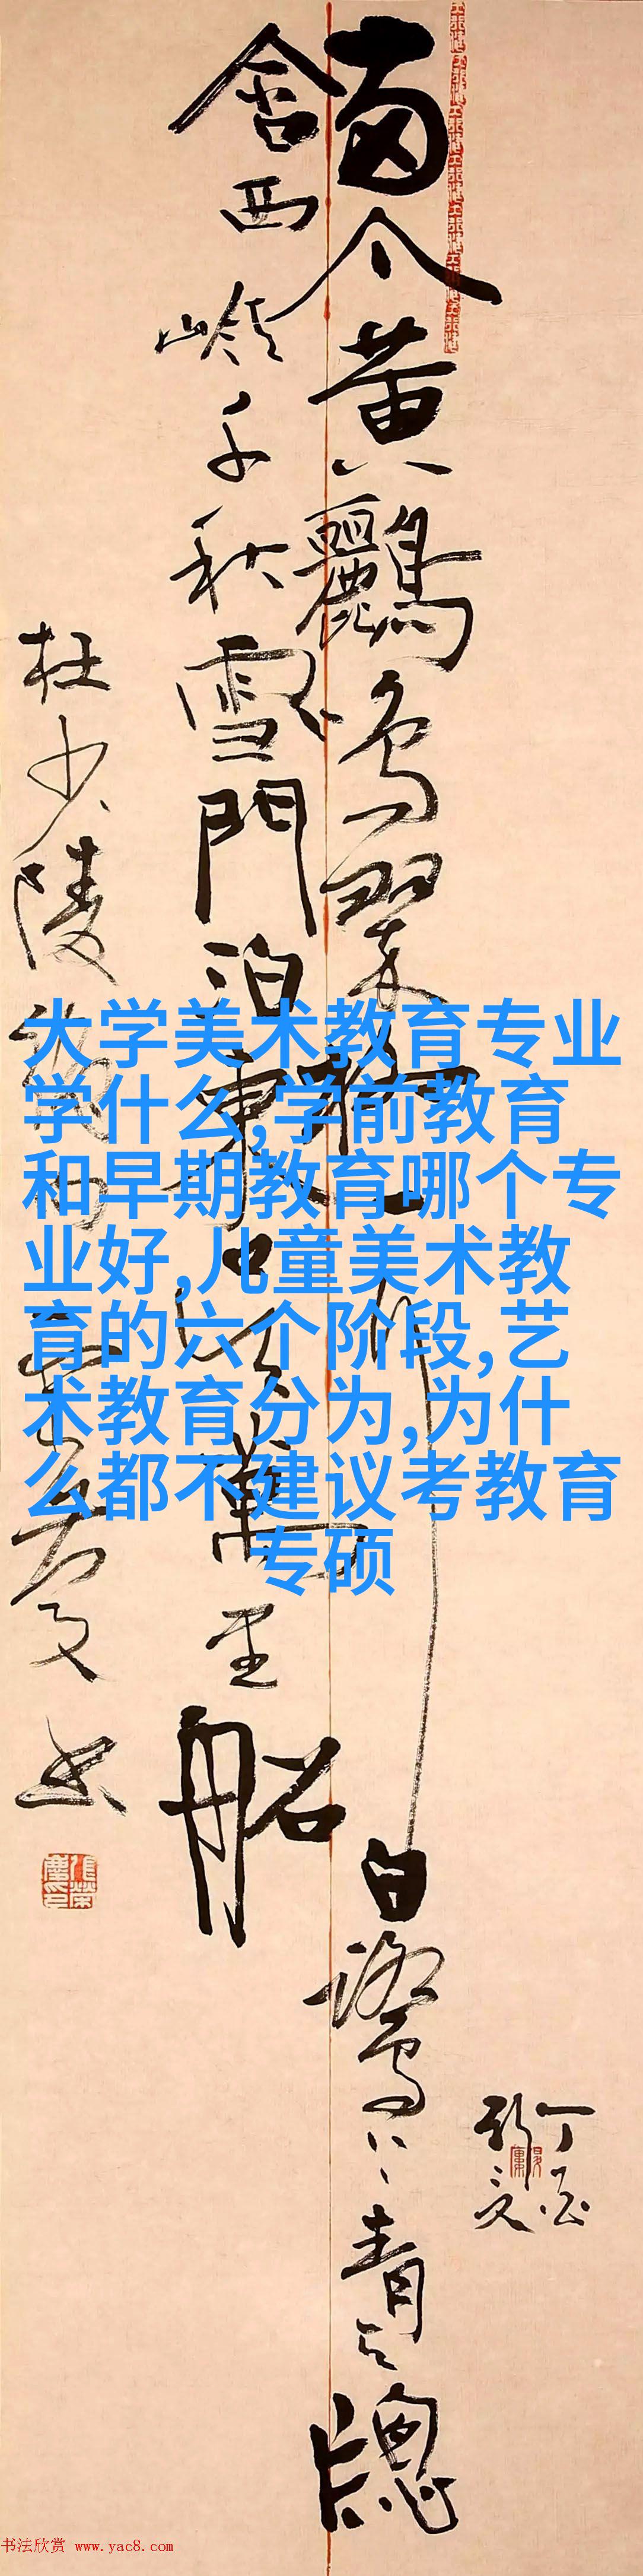 两个黄鹂鸣翠柳一行白鹭上青天窗
含西岭千秋雪门泊东吴万里船
杜少陵
大学美术教育专业
学什么,学前教育
和早期教育哪个专
业好,儿童美术教
育的六个阶段,艺
术教育分为,为什
么都不建议考教育
专硕
书法欣赏 www.yac8.com